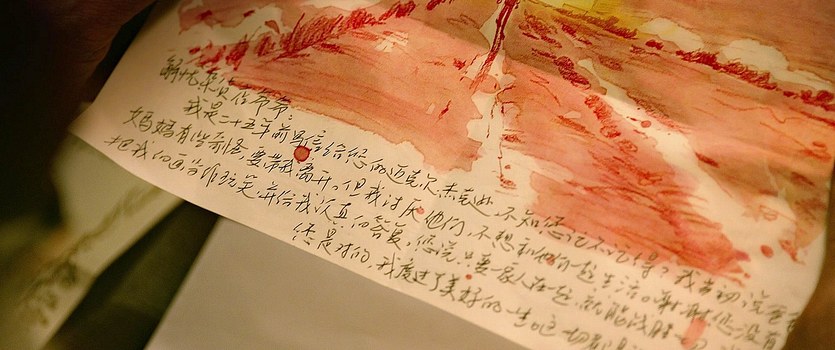 解忧杂货店爷爷：
我是二十五年前写信给您的迈克尔·杰克逊，不知您还记不记得？我当初说爸爸
妈妈有些奇怪，要带我离开。但我讨厌他们，不想和他们一起生活。谢谢您没有
把我的画当作玩笑，并给我认真的答复，您说只要一家人在一起，就能战胜一
您是对的，我度过了美好的一生，这一切都是